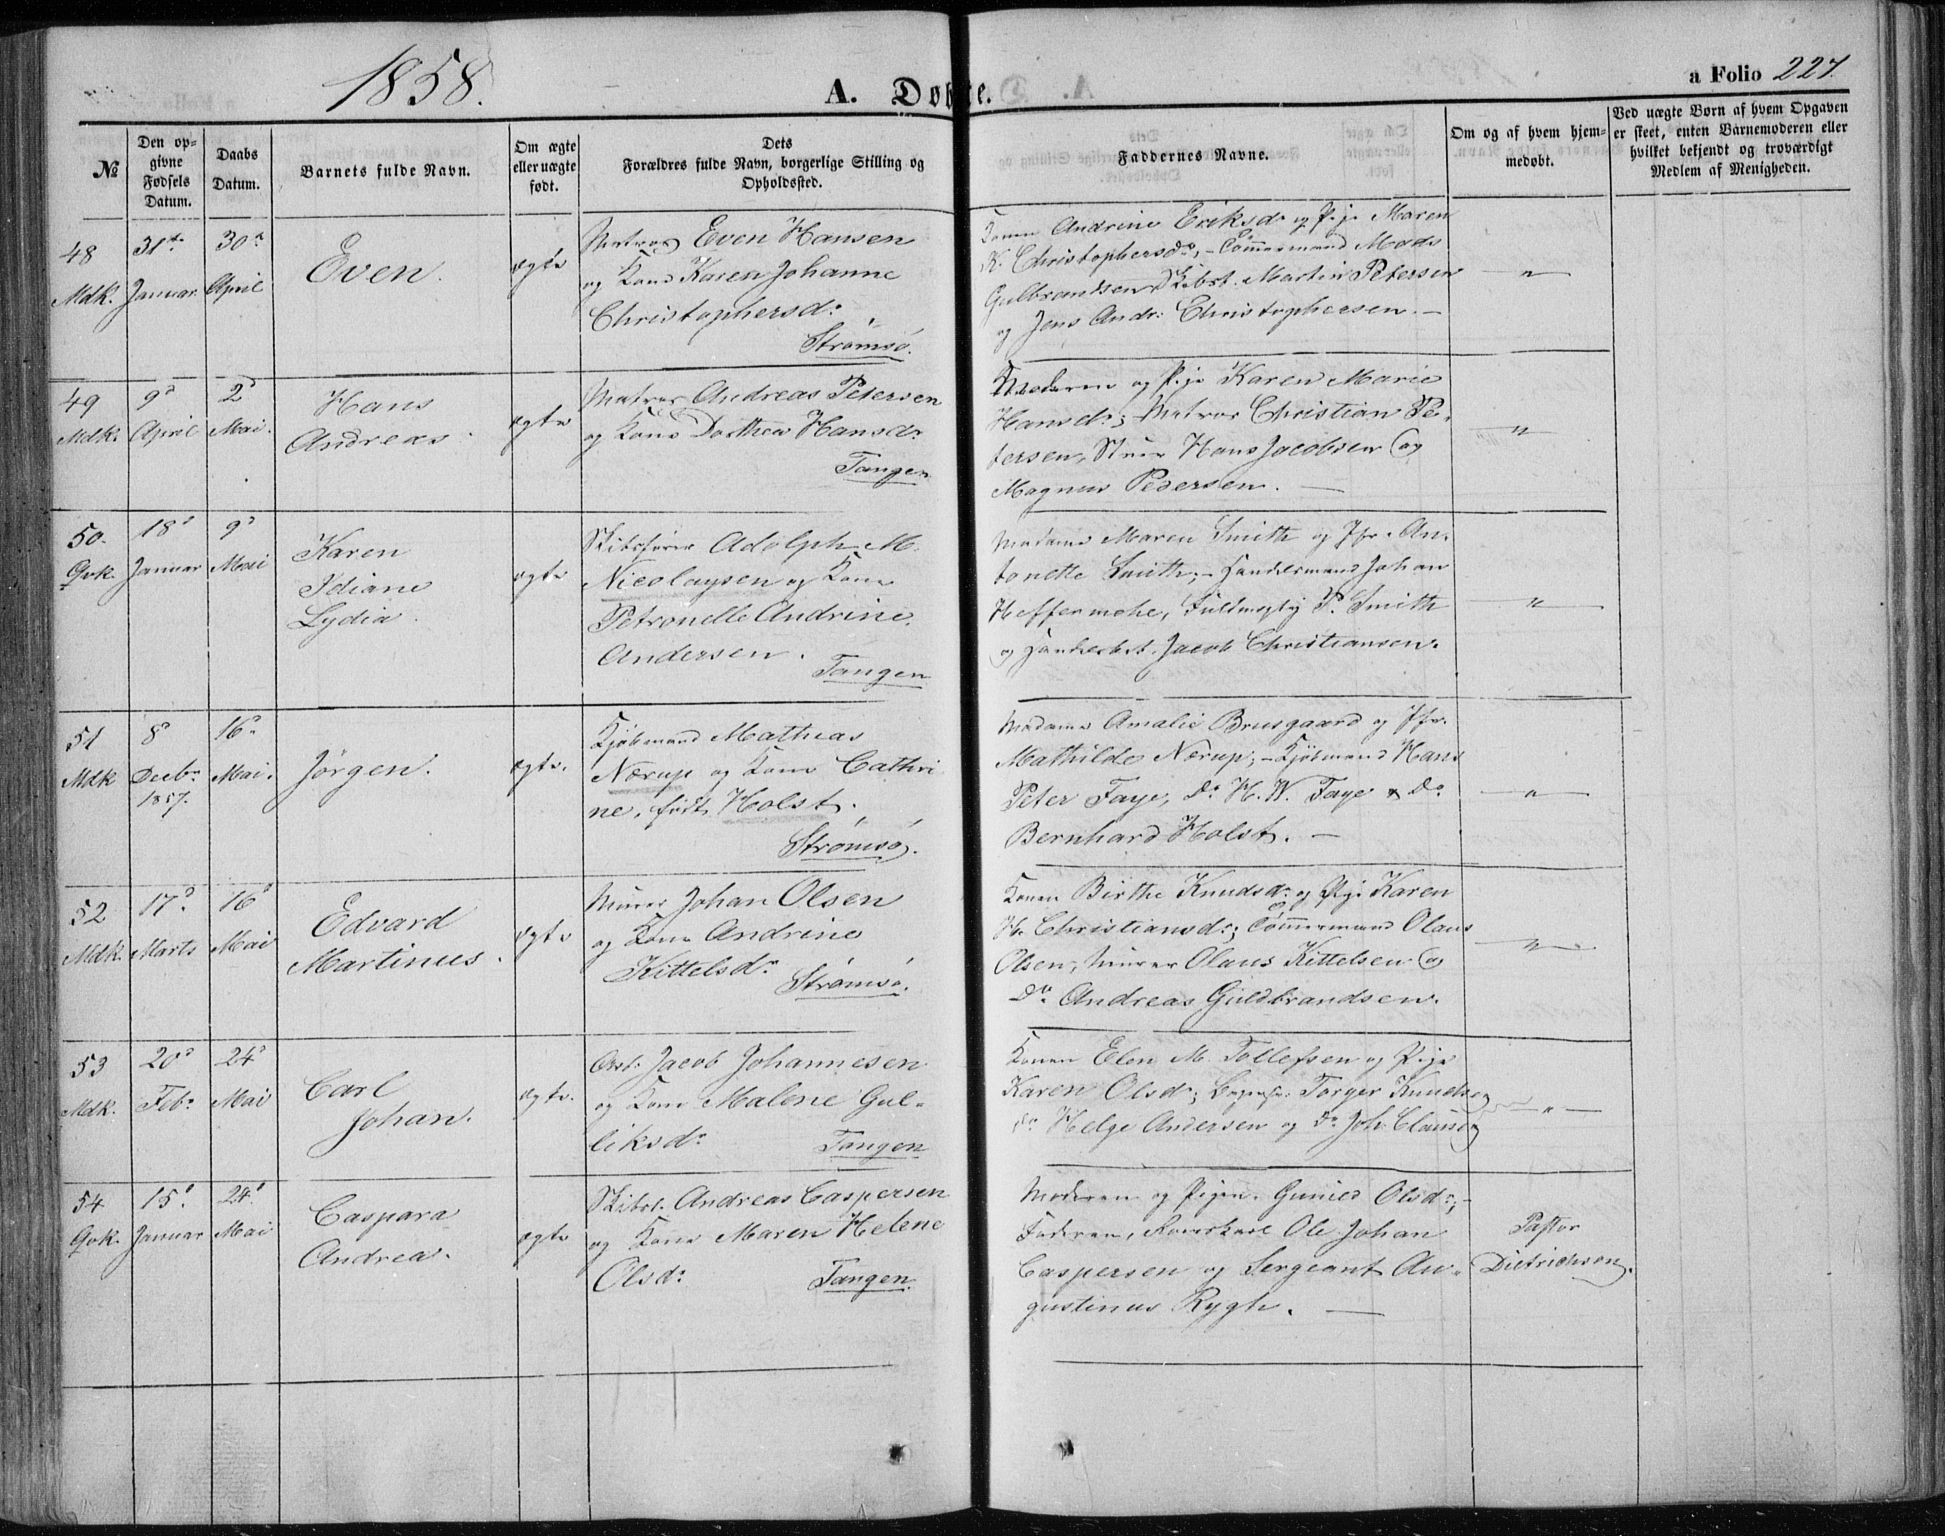 1858.
A. Døbte.
a Folio 227.
№
Den opgivne Fødsels Datum.
Daabs Datum.
Barnets fulde Navn.
Om ægte eller uægte født.
Dets Forældres fulde Navn, borgerlige Stilling og Opholdssted.
Faddernes Navne.
Om og af hvem hjemmedøbt.
Ved uægte Børn af hvem Opgaven er skeet, enten Barnemoderen eller hvilket bekjendt og troværdigt Medlem af Menigheden.
48
Mdk.
31te
Januar
30te
April
Even.
ægte
Matros Even Hansen
og Kone Karen Johanne
Christophersdr.
Strømsø.
Konen Andrine Eriksdr og Pige Maren
K. Christophersdr, – Tømmermand Mads
Gulbrandsen, Skibst. Martin Petersen
og Jens Andr: Christophersen. –
– " –
49
Mdk.
9d
April
2d
Mai.
Hans
Andreas.
ægte
Matros Andreas Petersen
og Kone Dorthea Hansdr
Tangen
Moderen og Pige Karen Marie
Hansdr; Matros Christian Pe-
tersen, Stuer Hans Jacobsen og
Magnus Pedersen. –
– " –
50.
Qvk.
18d
Januar
9d
Mai
Karen
Idiane
Lydia.
ægte
Skibsfører Adolph M.
Nicolaysen og Kone
Petronelle Andrine
Andersen.
Tangen
Madame Maren Smith og Jfr. An-
tonette Smith; – Handelsmand Johan
Heffermehe, Fuldmægtig P. Smith
og Handelsbet. Jacob Christiansen.
– " –
51
Mdk
8d
Decbr
1857.
16d
Mai.
Jørgen.
ægte.
Kjøbmand Mathias
Nærup og Kone Cathri
ne, født Holst.
Strømsø.
Madame Amalie Brusgaard og Jfr.
Mathilde Nærup; – Kjøbmand Hans
Peter Faye, Do H. W. Faye & Do
Bernhard Holst. –
– " –
52
Mdk.
17d.
Marts
16d
Mai
Edvard
Martinus.
ægte
Murer Johan Olsen
og Kone Andrine
Kittelsdr
Strømsø.
Konen Birthe Knudsdr og Pige Karen
H. Christiansdr; Tømmermand Olaus
Olsen, Murer Olaus Kittelsen og
Do Andreas Guldbrandsen.
– " –
53
Mdk.
20d
Febr
24d
Mai
Carl
Johan.
ægte.
Arb. Jacob Johannesen
og Kone Malene Gul-
liksdr
Tangen
Konen Elen M. Tollefsen og Pige
Karen Olsdr; Torger Knudsen
do Helge Andersen og do Joh. Clausen
– " –
54
Qvk.
15d.
Januar
24d
Mai
Caspara
Andrea.
ægte
Skibst. Andreas Caspersen
og Kone Maren Helene
Olsdr
Tangen
Moderen og Pigen Gunild Olsdr; –
Faderen, Ole Johan
Caspersen og Sergeant Au-
gustinus Rygh. –
Pastor
Dietrichson.